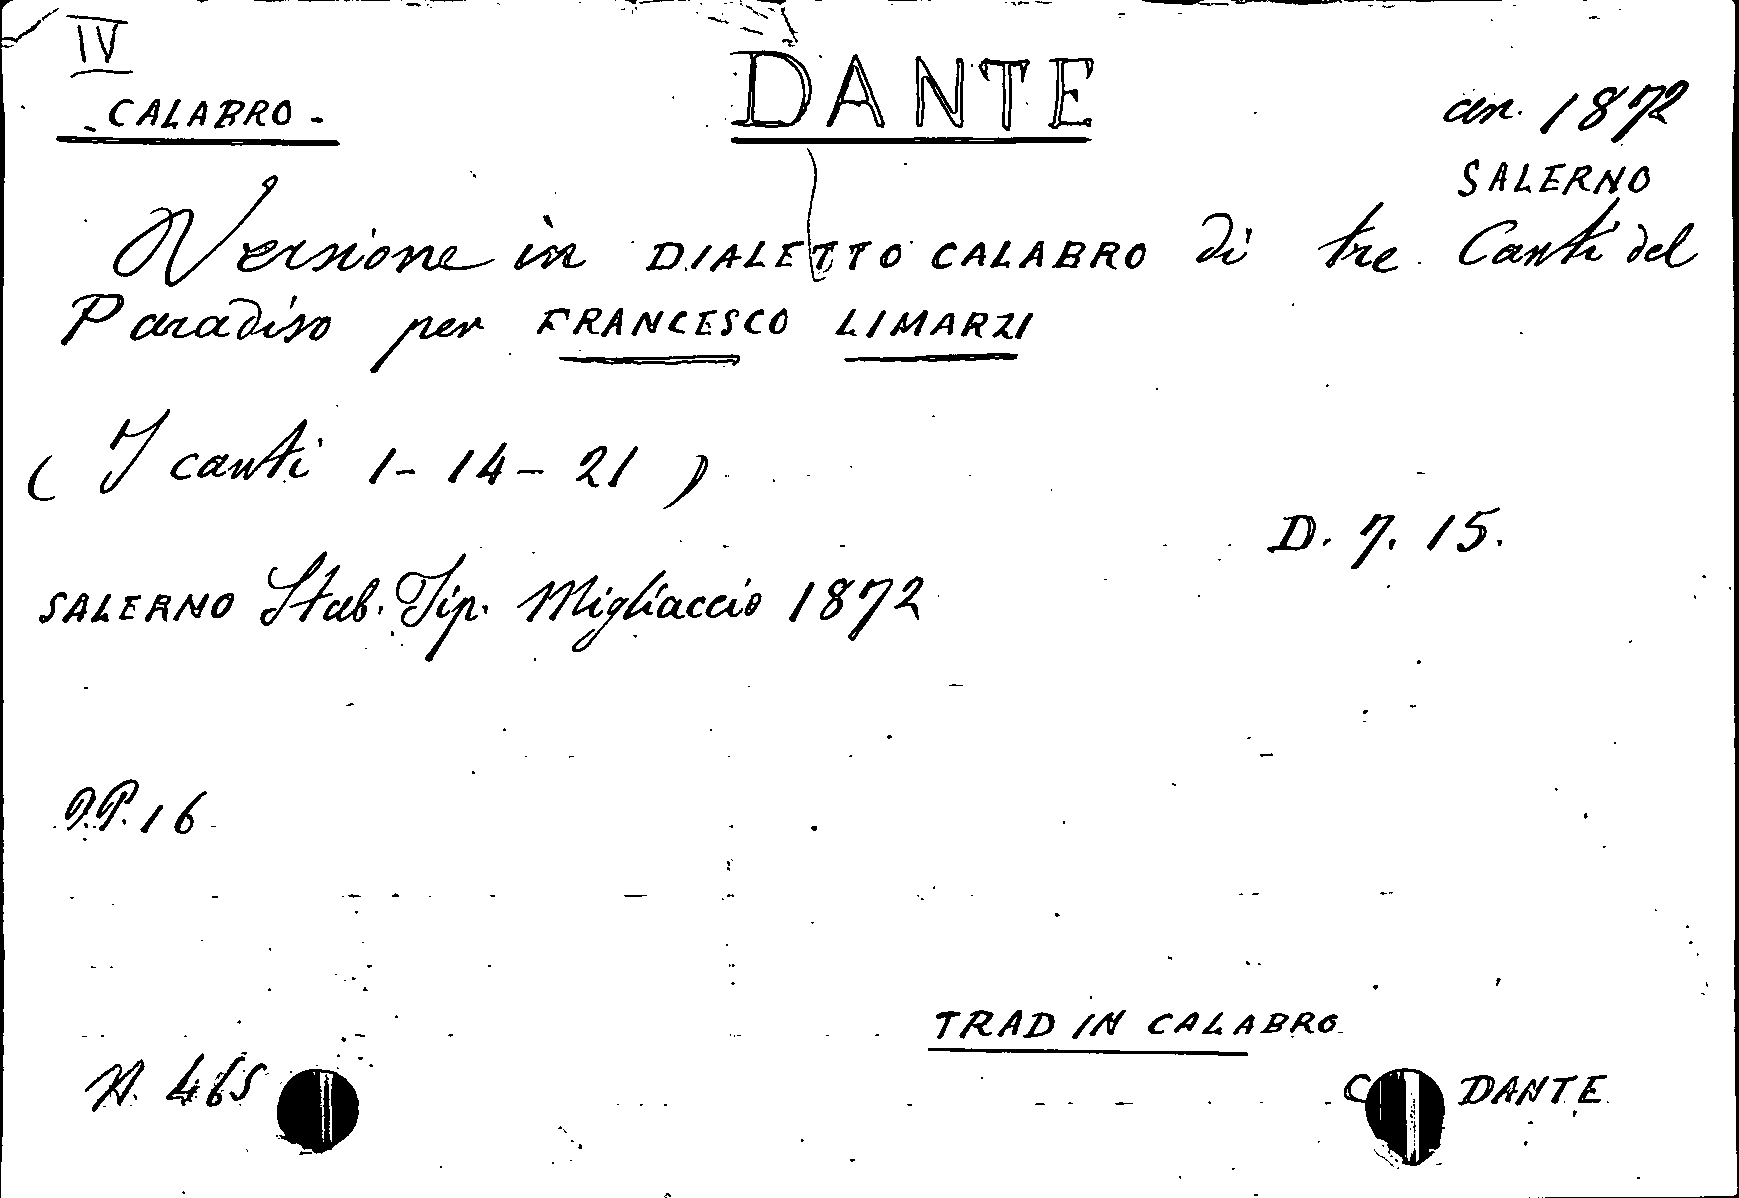 IV
- CALABRO -
DANTE
an. 1872
SALERNO
Versione in DIALETTO CALABRO di tre Canti del
Paradiso per FRANCESCO LIMARZI
( I canti 1 - 14 - 21 )
D. 7. 15.
SALERNO Stab. Tip. Migliaccio 1872
P.P. 16
TRAD IN CALABRO
N. 465
DANTE